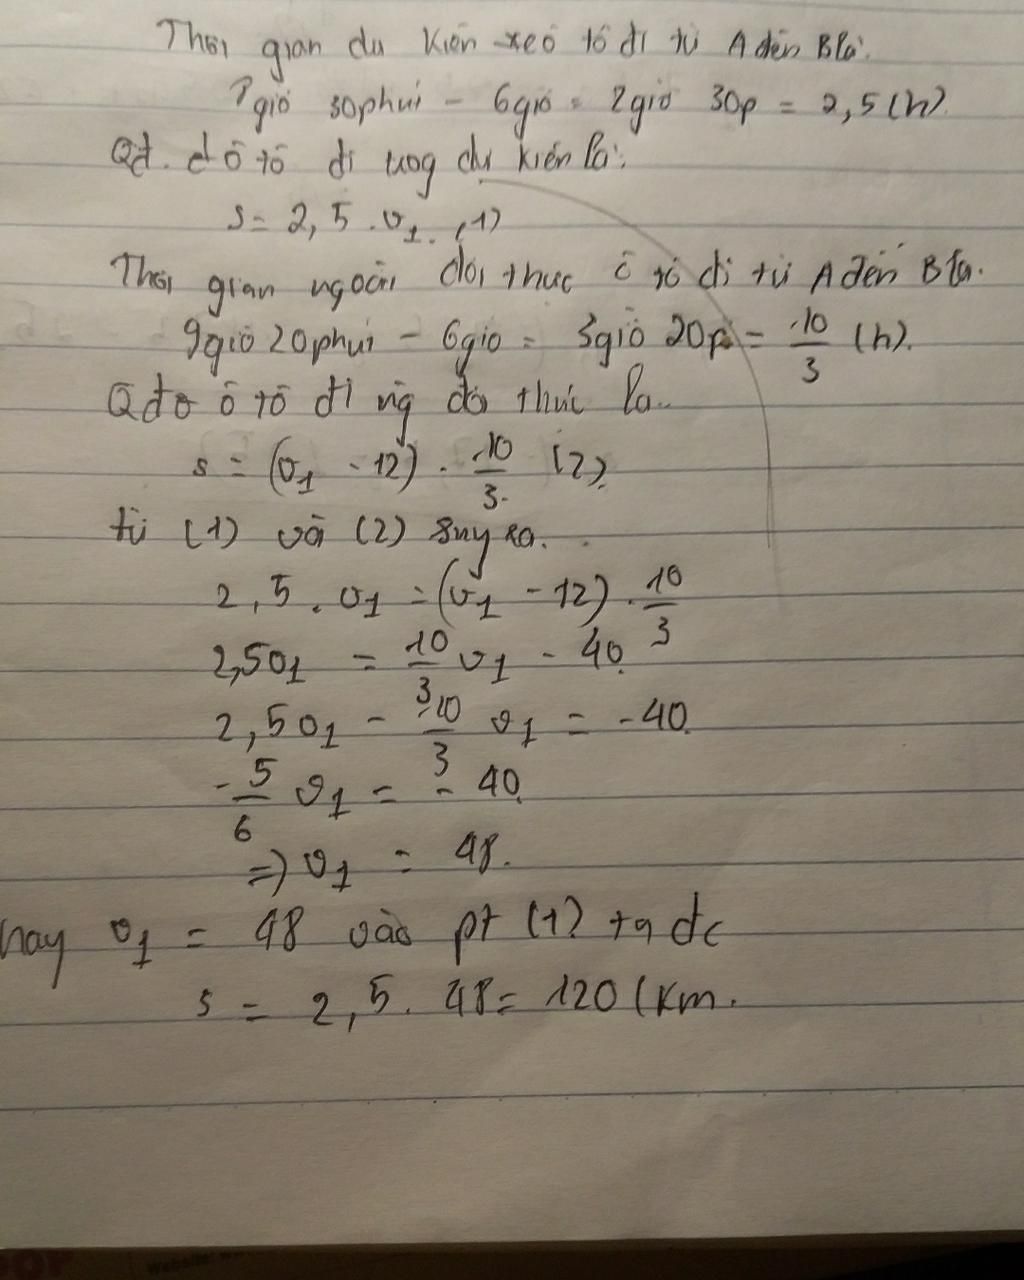 Thời gian dự kiến xe ô tô đi từ A đến B là:
? giờ 30 phút - 6 giờ = 2 giờ 30p = 2,5 (h)
Qđ. d ô tô đi dự kiến là:
s = 2,5 . v1. (1)
Thời gian ngoài đời thực ô tô đi từ A đến B là.
9 giờ 20 phút - 6 giờ = 3 giờ 20p = 10/3 (h).
Qđ ô tô đi ng đời thực là.
s = (v1 - 12) . 10/3 (2)
từ (1) và (2) suy ra.
2,5 . v1 = (v1 - 12) . 10/3
2,5v1 = 10/3 v1 - 40
2,5v1 - 10/3 v1 = -40
-5/6 v1 = -40
=> v1 = 48.
hay v1 = 48 vào pt (1) ta đc
s = 2,5 . 48 = 120 (km.